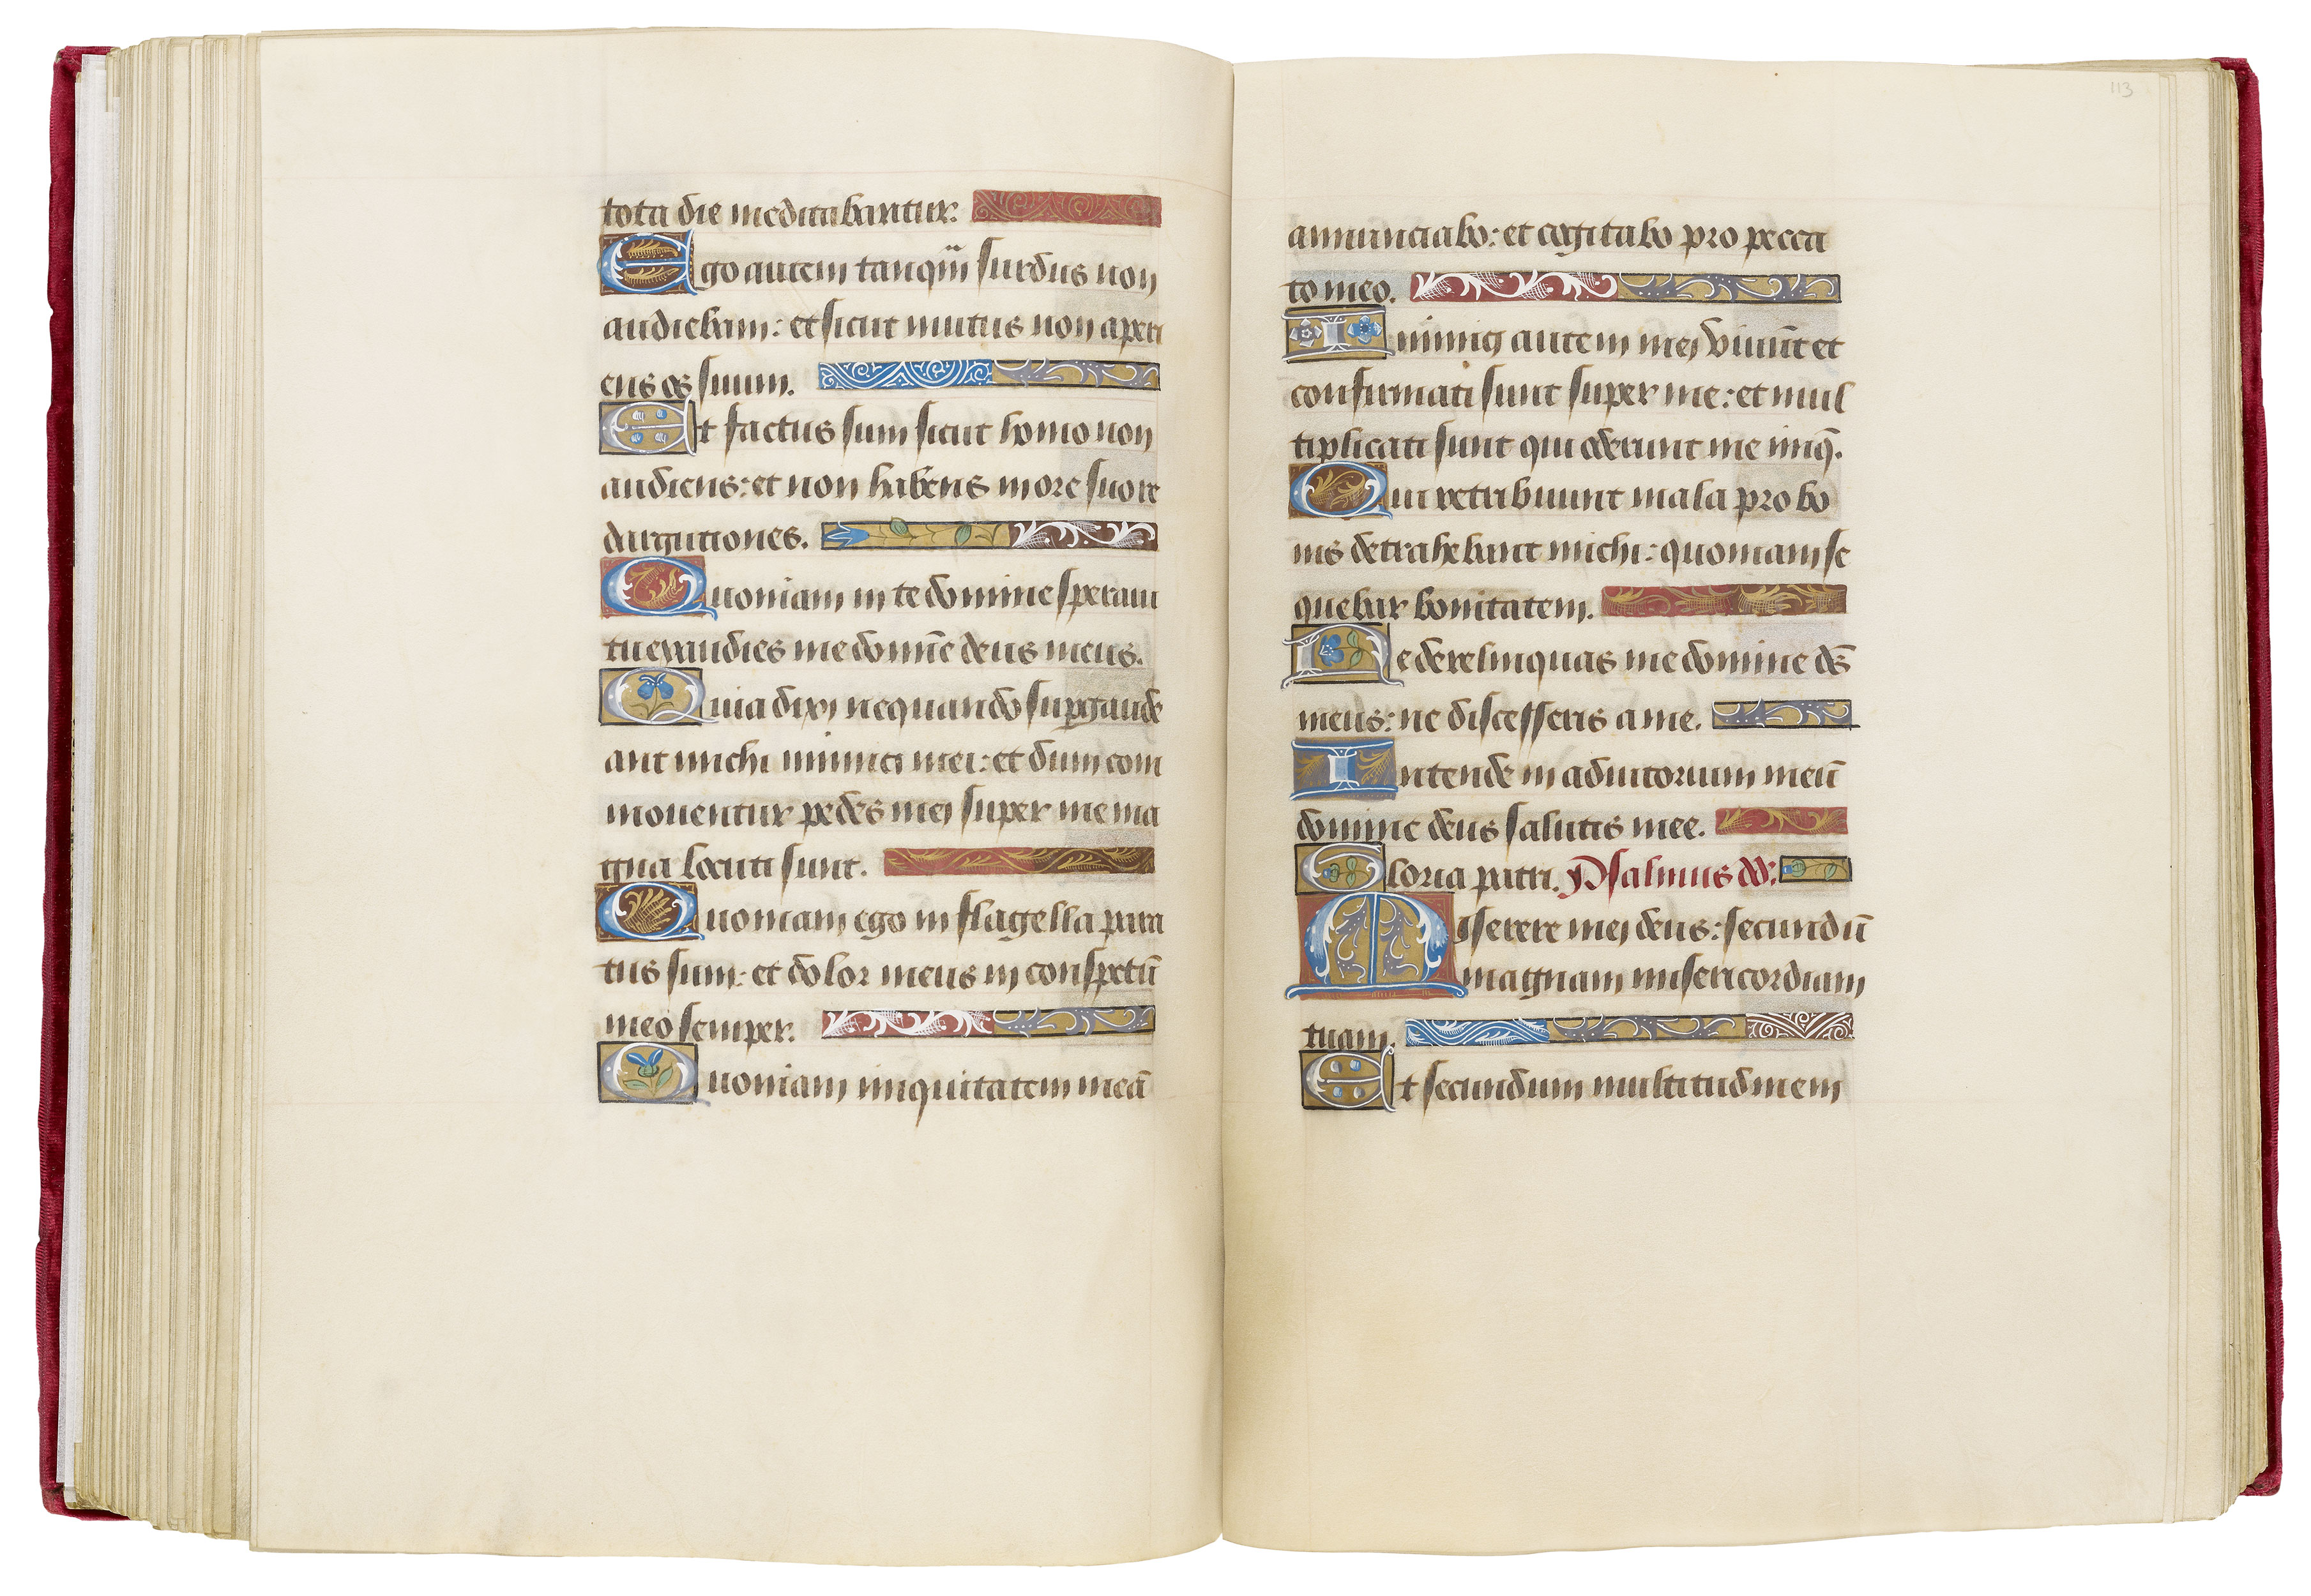 tota die meditabantur.
Ego autem tanqm̃ surdus non
audiebam: et sicut mutus non aperi
ens os suum.
Et factus sum sicut homo non
audiens: et non habens in ore suo re
dargutiones.
Quoniam in te domine speraui
tu exaudies me domĩe deus meus.
Quia dixi nequando supgaude
ant michi inimici mei: et dum com
mouentur pedes mei super me ma
gna locuti sunt.
Quoniam ego in flagella para
tus sum: et dolor meus in conspetũ
meo semper.
Quoniam iniquitatem meã
113
annunciabo: et cogitabo pro pecca
to meo.
Inimici autem mei viuũt et
confirmati sunt super me: et mul
tiplicati sunt qui oderunt me iniq̃.
Qui retribuunt mala pro bo
nis detrahebant michi: quoniam se
quebar bonitatem.
Ne derelinquas me domine ds̃
meus: ne discesseris a me.
Intende in adiutorium meũ
domine deus salutis mee.
Gloria patri. Psalmus dd:
Miserere mei deus: secundũ
magnam misericordiam
tuam.
Et secundum multitudinem